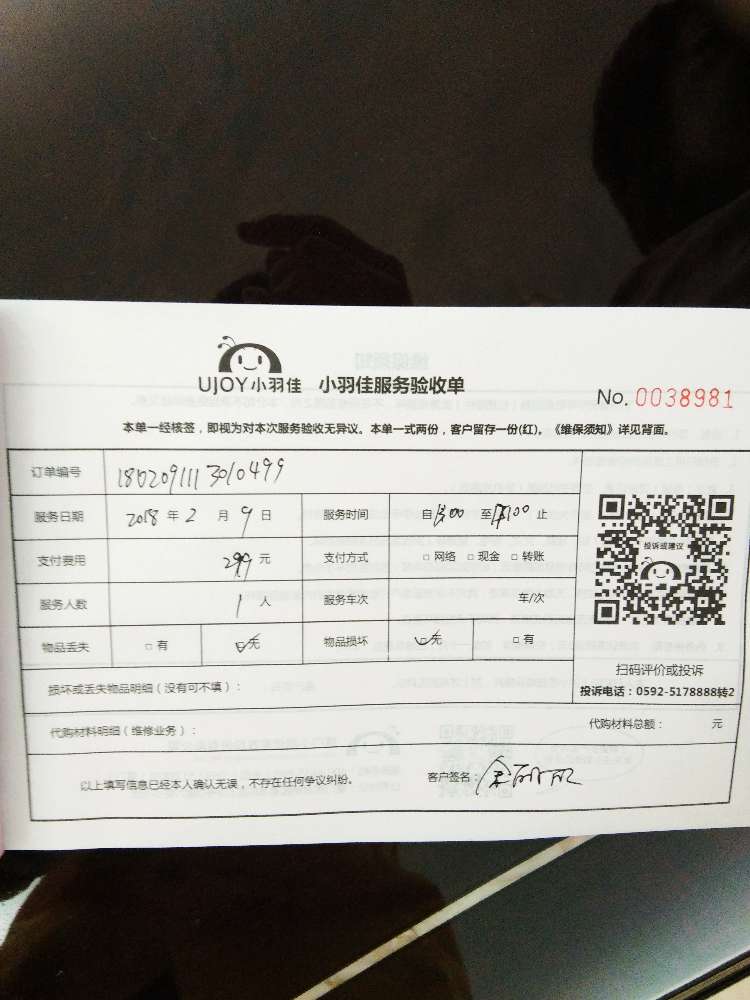 UJOY小羽佳 小羽佳服务验收单
No. 0038981
本单一经核签，即视为对本次服务验收无异议。本单一式两份，客户留存一份(红)。《维保须知》详见背面。
订单编号 1802091113010499
服务日期 2018 年 2 月 9 日 服务时间 自 至 止
支付费用 299 元 支付方式 □ 网络 □ 现金 □ 转账
服务人数 1 人 服务车次 车/次
物品丢失 □ 有 □ 无 物品损坏 □ 无 □ 有
投诉或建议
扫码评价或投诉
投诉电话：0592-5178888转2
损坏或丢失物品明细（没有可不填）：
代购材料明细（维修业务）： 代购材料总额： 元
以上填写信息已经本人确认无误，不存在任何争议纠纷。 客户签名：